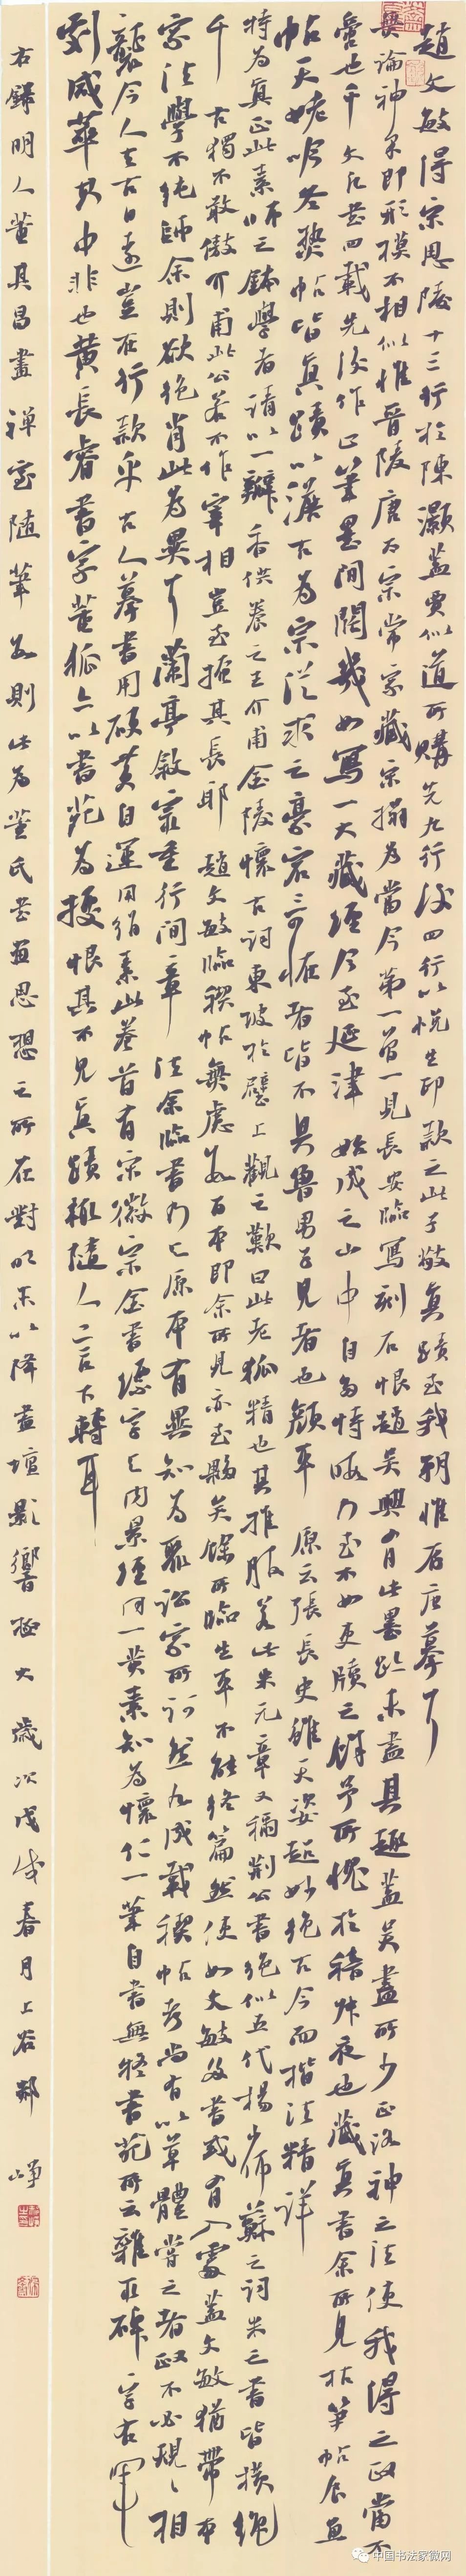 趙文敏得宋思陵十三行於陳灝蓋賈似道所購先九行後四行以悅生印款之此子敬真蹟至我朝惟唐摹耳
無論神采即形模不相似惟晉陵唐太常家藏宋搨為當今第一曾一見長安臨寫刻石恨趙吳興有此墨跡未盡其趣蓋吳盡所少正洛神之法使我得之政當不
啻也千文凡書四載先後作止筆墨間闊幾如寫一大藏經今至延津始成之山中自局特暇乃至不如吏牘之餘予所愧於稽叔夜也藏真書余所見枯筍帖食魚
帖天姥吟冬熱帖皆真蹟以淡古為宗從求之豪宕奇怪者皆不具魯男子見者也顏平原云張長史雖天姿超妙絕古今而楷法精詳
特為真正此素師之鉢學者請以一瓣香供養之王介甫金陵懷古詞東坡於壁上觀之歎曰此老狐精也其推服若此米元章又稱荊公書絕似五代楊少師蘇之詞米之書皆橫絕
千古獨不敢傲介甫此公若不作宰相豈至掩其長耶趙文敏臨禊帖無慮數百本即余所見亦至夥矣餘所臨生平不能終篇然使如文敏多書或有入處蓋文敏猶帶本
家法學不純師余則欲絕肖此為異耳蘭亭敘最重行間章法余臨書乃與原本有異知為聚訟家所訶然九成載禊帖考尚有以草體當之者政不必規規相
襲今人去古日遠豈在行款乎古人摹書用硬黃自運用絹素此卷首有宋徽宗金書標字與內景經同一黃素知為懷仁一筆自書無疑書苑所云雜取碑字右軍
劇咸萃其中非也黃長睿書家董狐亦以書苑為據恨其不見真蹟輒隨人言下轉耳
右錄明人董其昌畫禪室隨筆數則此為董氏書畫思想之所在對明末以降畫壇影響極大歲次戊戌春月上谷鄭崢
中国书法家微网